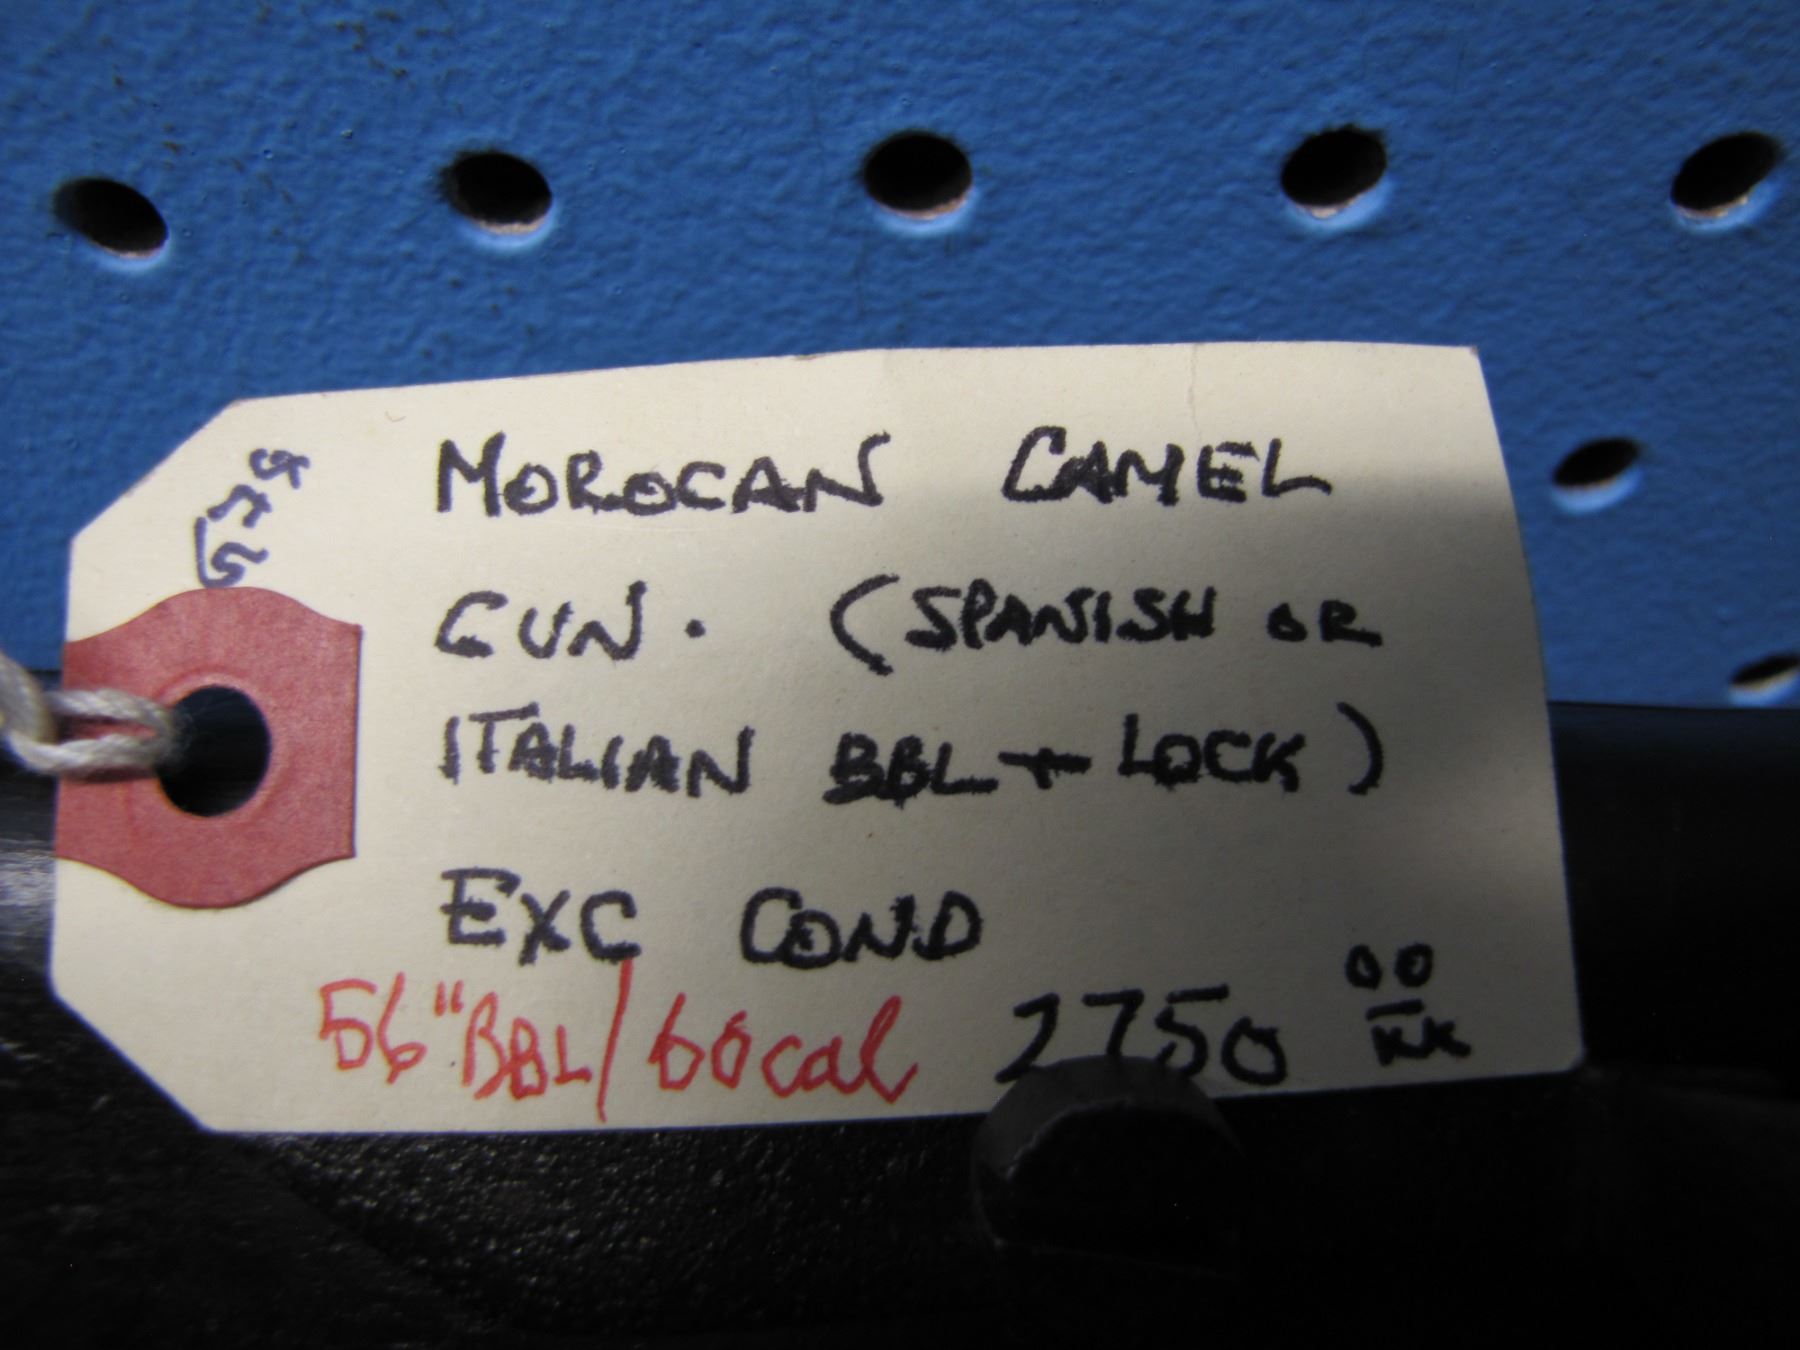 MOROCAN CAMEL
GUN. (SPANISH OR
ITALIAN BBL + LOCK)
EXC COND
56" BBL/60cal 2750 00